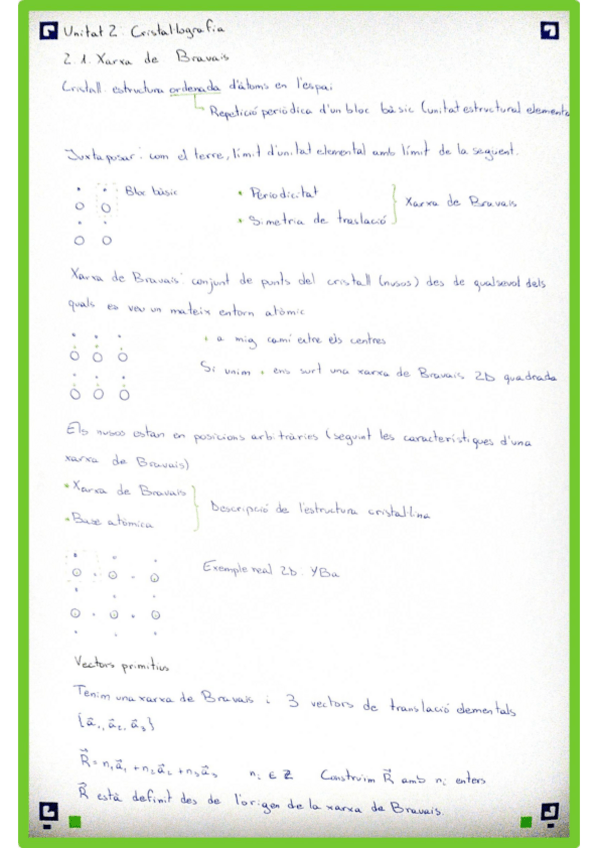 Unitat 2: Cristal·lografia
2.1. Xarxa de Bravais
Cristall: estructura ordenada d'àtoms en l'espai
Repetició periòdica d'un bloc bàsic (unitat estructural elementa
Juxtaposar: com el terre, límit d'unitat elemental amb límit de la seguent.
Bloc bàsic
• Periodicitat
• Simetria de traslació
Xarxa de Bravais
Xarxa de Bravais: conjunt de punts del cristall (nusos) des de qualsevol dels
quals es veu un mateix entorn atòmic
• a mig camí entre els centres
Si unim • ens surt una xarxa de Bravais 2D quadrada
Els nusos estan en posicions arbitràries (seguint les característiques d'una
xarxa de Bravais)
• Xarxa de Bravais
• Base atòmica
Descripció de l'estructura cristal·lina
Exemple real 2D. YBa
Vectors primitius
Tenim una xarxa de Bravais i 3 vectors de translació elementals
{a⃗₁, a⃗₂, a⃗₃}
R⃗ = n₁a⃗₁ + n₂a⃗₂ + n₃a⃗₃ nᵢ ∈ ℤ Construim R⃗ amb nᵢ enters
R⃗ està definit des de l'origen de la xarxa de Bravais.